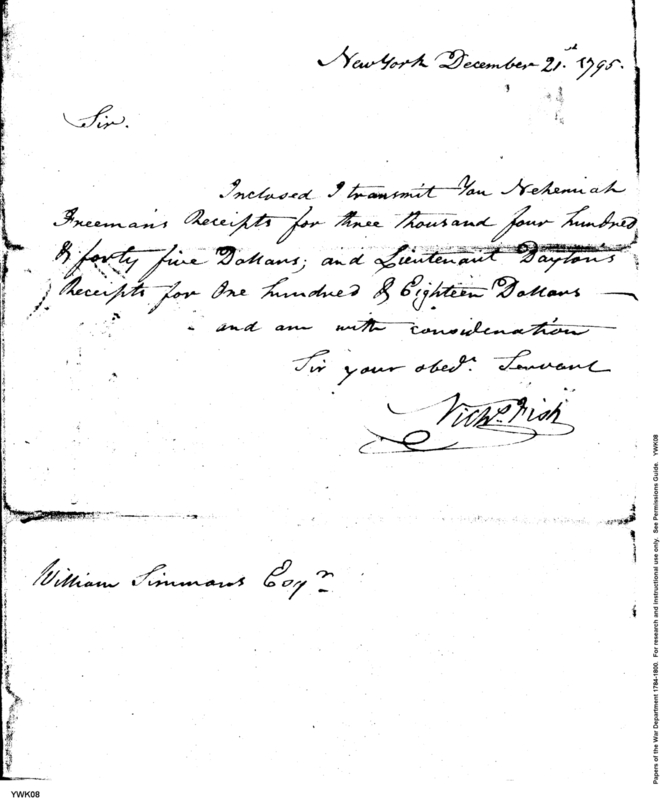 New York December 21.st 1795.
Sir.
Inclosed I transmit You Nehemiah
Freeman's Receipts for three thousand four hundred
& forty five Dollars; and Lieutenant Dayton's
Receipts for One hundred & Eighteen Dollars —
and am with consideration
Sir your obed.t Servant
Nich.s Fish
William Simmons Esqr
Papers of the War Department 1784-1800. For research and instructional use only. See Permissions Guide. YWK08
YWK08